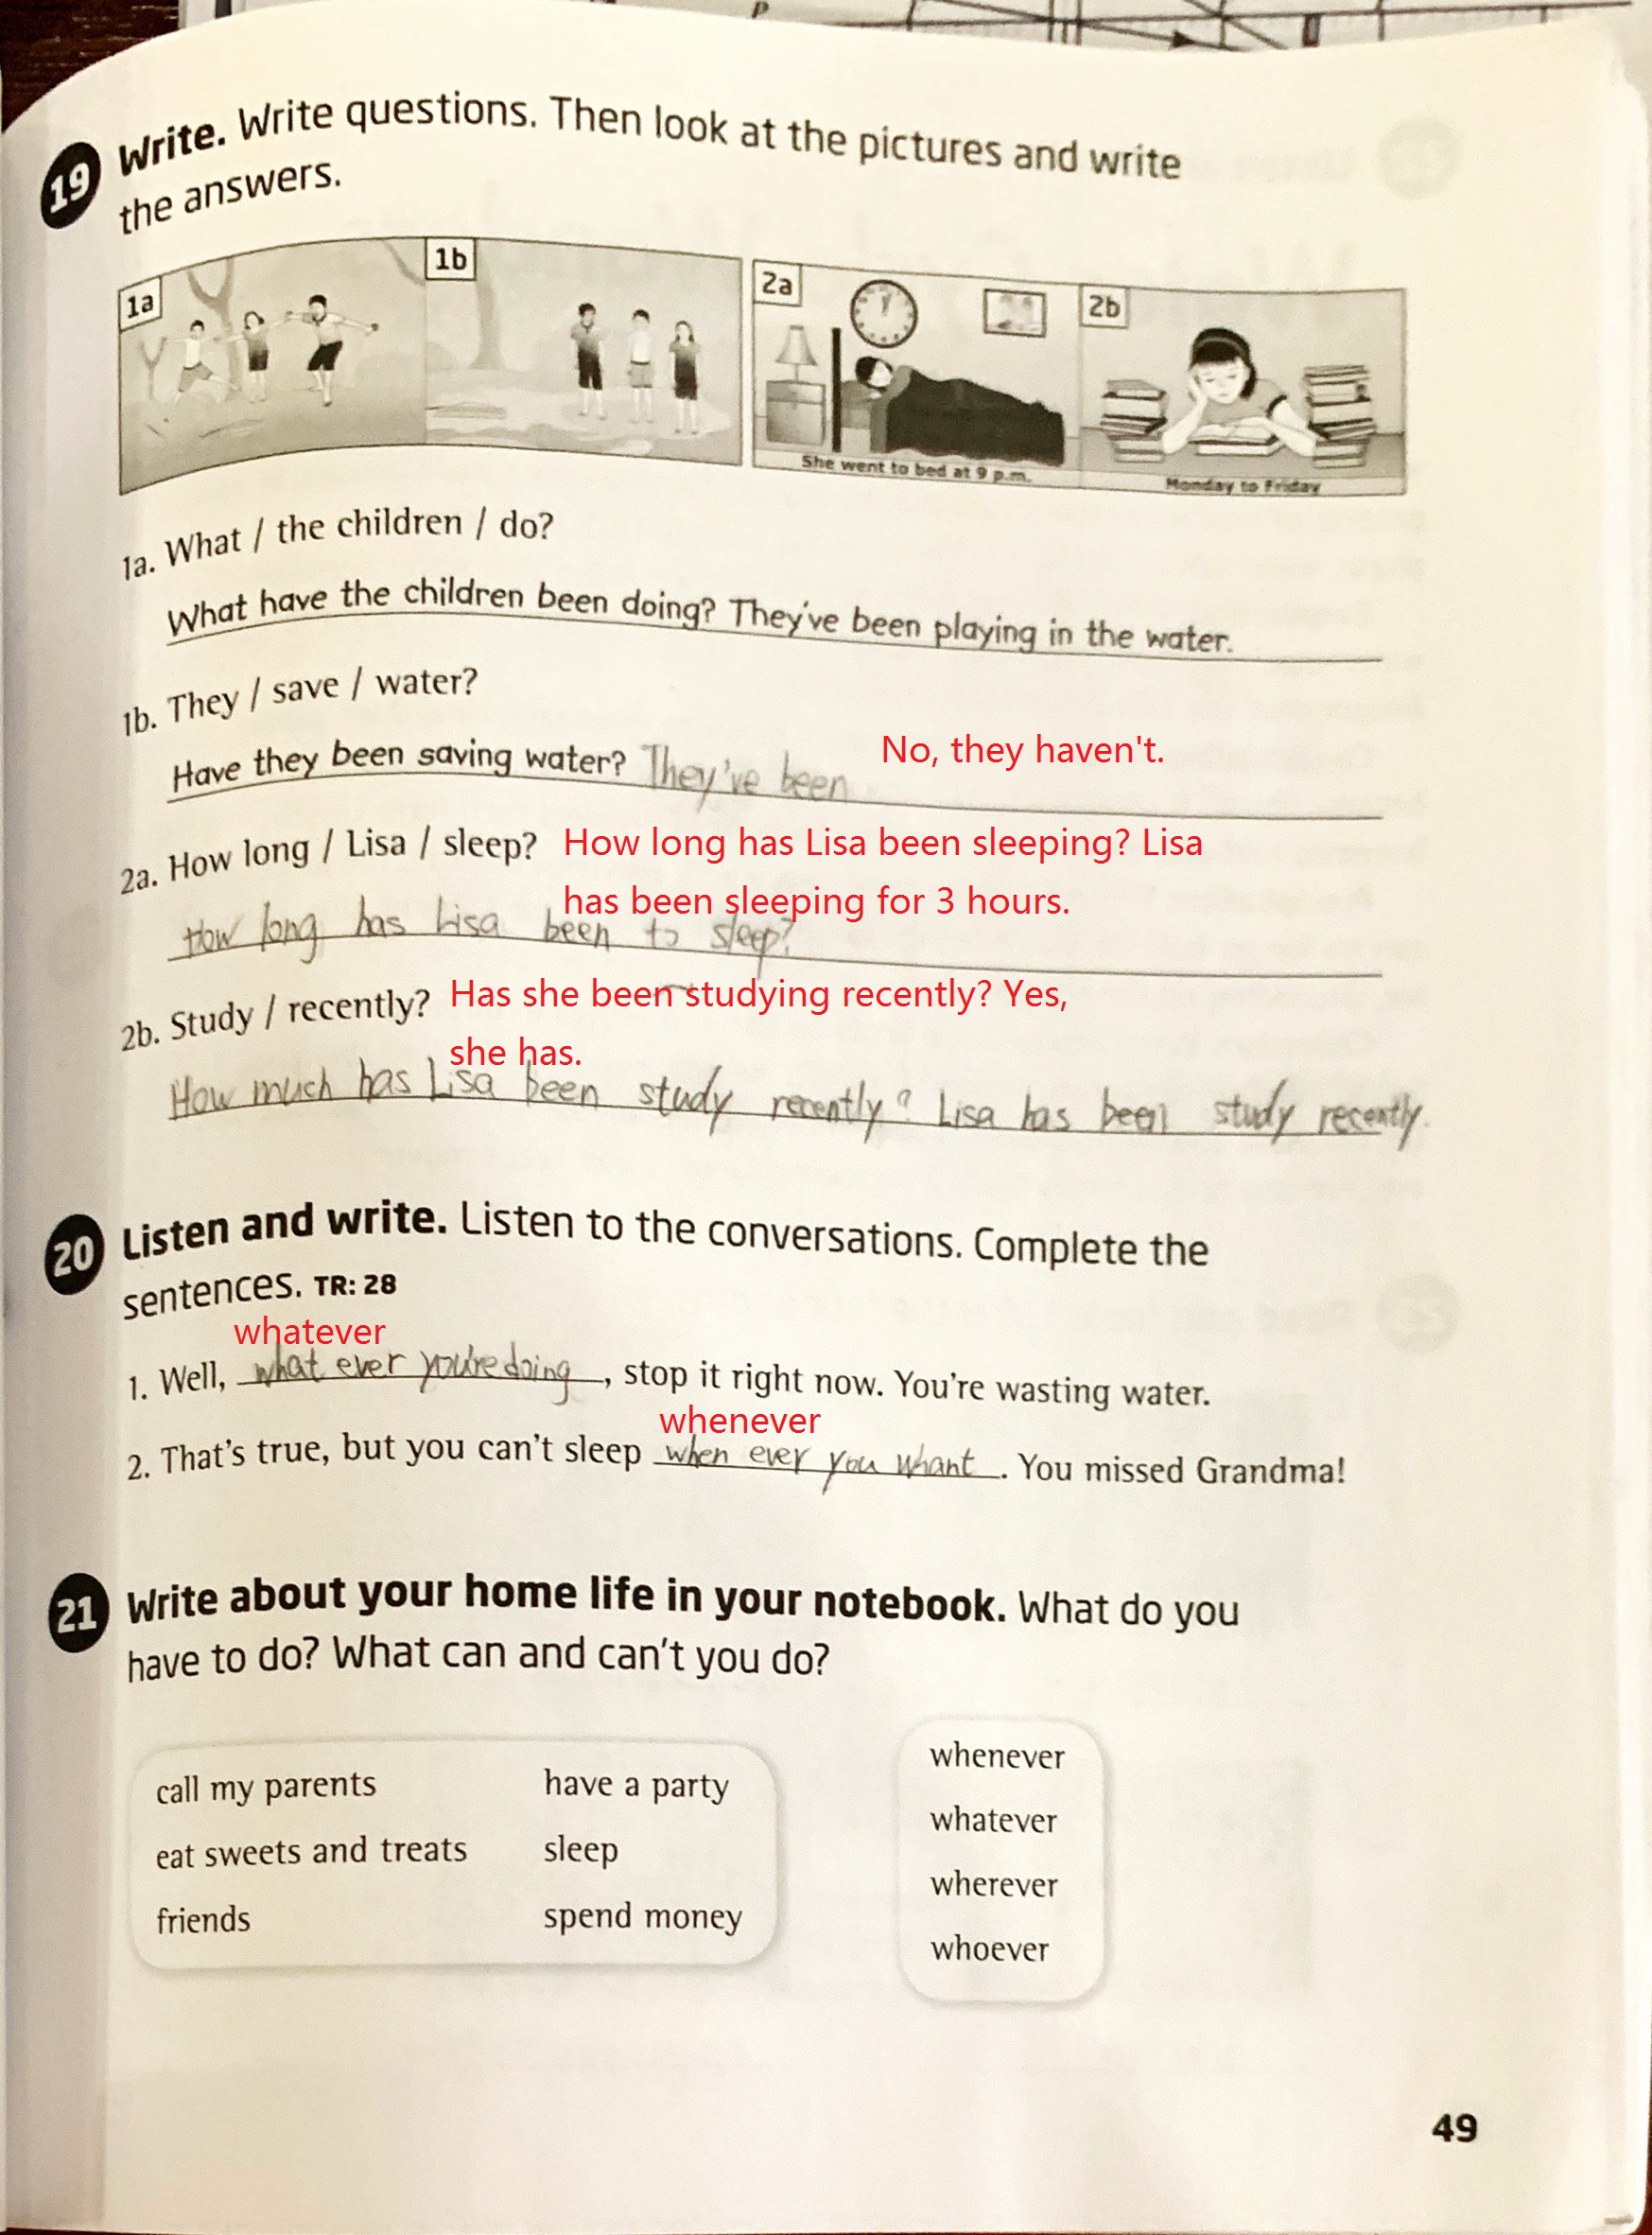 P
19 Write. Write questions. Then look at the pictures and write
the answers.
1a
1b
2a
2b
She went to bed at 9 p.m.
Monday to Friday
1a. What / the children / do?
What have the children been doing? They've been playing in the water.
1b. They / save / water?
No, they haven't.
Have they been saving water? They've been
2a. How long / Lisa / sleep?
How long has Lisa been sleeping? Lisa
has been sleeping for 3 hours.
How long has Lisa been to sleep?
2b. Study / recently?
Has she been studying recently? Yes,
she has.
How much has Lisa been study recently? Lisa has been study recently.
20 Listen and write. Listen to the conversations. Complete the
sentences. TR: 28
whatever
1. Well, what ever you're doing, stop it right now. You're wasting water.
whenever
2. That's true, but you can't sleep when ever you whant. You missed Grandma!
21 Write about your home life in your notebook. What do you
have to do? What can and can't you do?
call my parents have a party
eat sweets and treats sleep
friends spend money
whenever
whatever
wherever
whoever
49